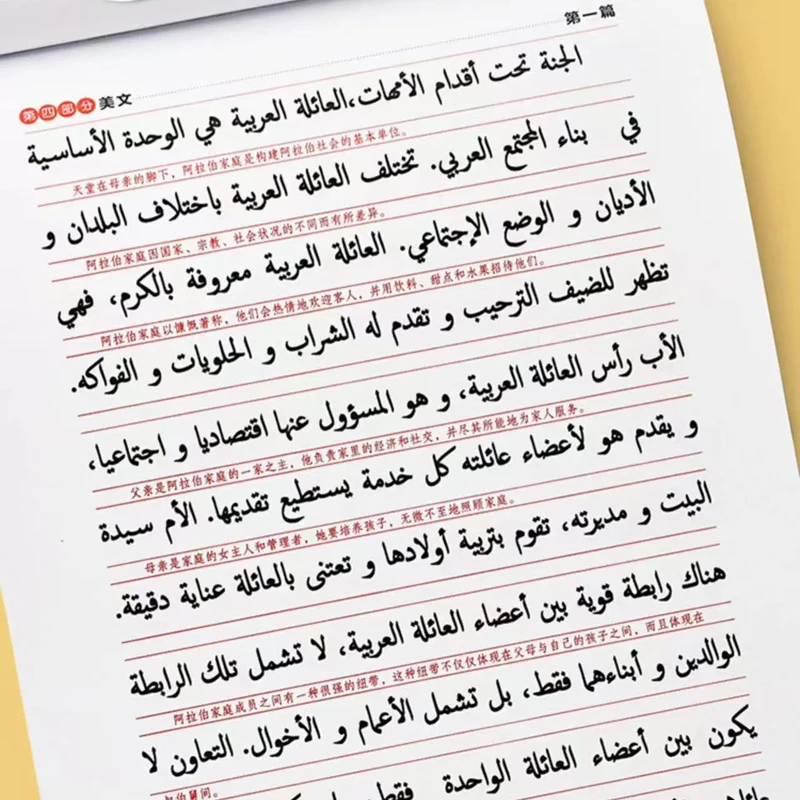 第一篇
第四部分 美文
الجنة تحت أقدام الأمهات،العائلة العربية هي الوحدة الأساسية
天堂在母亲的脚下，阿拉伯家庭是构建阿拉伯社会的基本单位。
في بناء المجتمع العربي. تختلف العائلة العربية باختلاف البلدان و
阿拉伯家庭因国家、宗教、社会状况的不同而有所差异。
الأديان و الوضع الإجتماعي. العائلة العربية معروفة بالكرم، فهي
阿拉伯家庭以慷慨著称，他们会热情地欢迎客人，并用饮料、甜点和水果招待他们。
تظهر للضيف الترحيب و تقدم له الشراب و الحلويات و الفواكه.
الأب رأس العائلة العربية، و هو المسؤول عنها اقتصاديا و اجتماعيا،
父亲是阿拉伯家庭的一家之主，他负责家里的经济和社交，并尽其所能地为家人服务。
و يقدم هو لأعضاء عائلته كل خدمة يستطيع تقديمها. الأم سيدة
母亲是家庭的女主人和管理者，她要培养孩子，无微不至地照顾家庭。
البيت و مديرته، تقوم بتربية أولادها و تعتنى بالعائلة عناية دقيقة.
هناك رابطة قوية بين أعضاء العائلة العربية، لا تشمل تلك الرابطة
阿拉伯家庭成员之间有一种很强的纽带，这种纽带不仅仅体现在父母与自己的孩子之间，而且体现在
الوالدين و أبناءهما فقط، بل تشمل الأعمام و الأخوال. التعاون لا
舅间。
يكون بين أعضاء العائلة الواحدة فقط